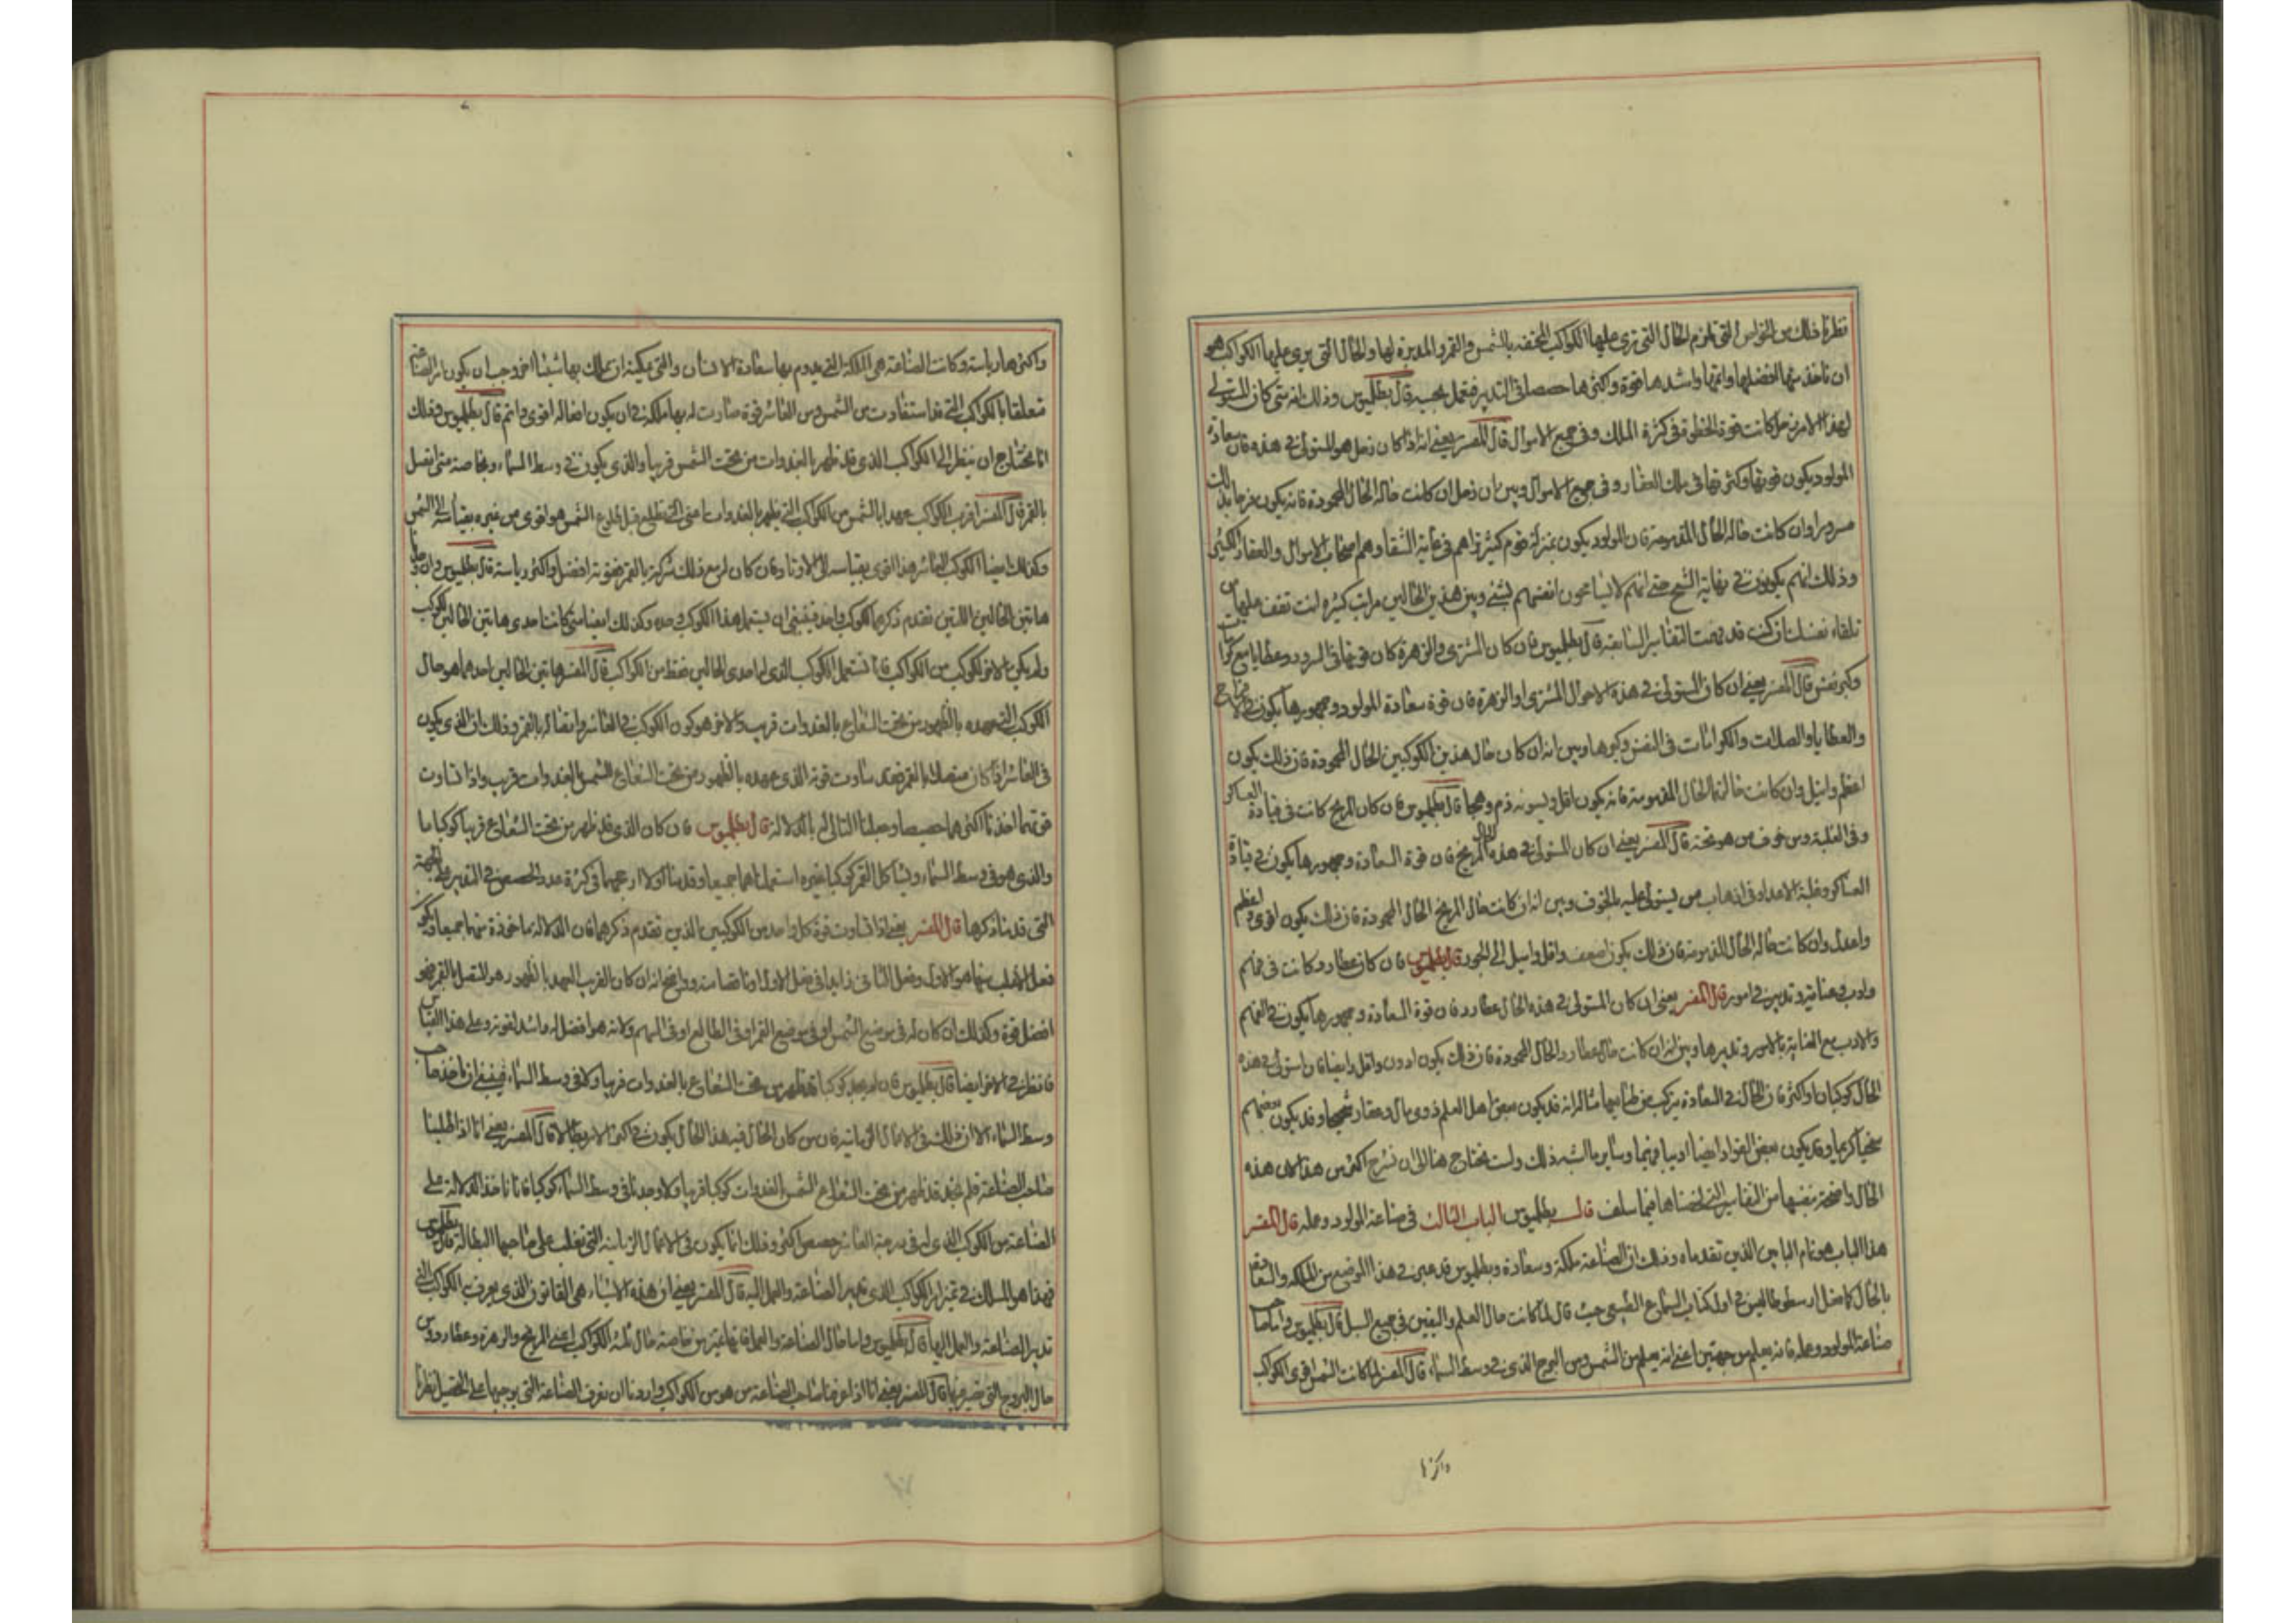 فطرنا ذلك من الخواص التي تلزم الحال التي ترى عليها الكواكب المختصة بالشمس والقمر والمدبرة لها والحال التي يرى عليها الكواكب هو
ان ناخذ منها افضلها واتمها واشدها قوة واكثرها حصصا في التدبير فنعمل بحسبه قال بطلميوس وذلك انه متى كان المتولي
لهذا الامر زحل كانت قوة الحظوة في كثرة الملك وفي جميع الاموال قال المفسر يعني انه اذا كان زحل هو المستولي في هذه فان سعادة
المولود يكون قوتها وكثرتها في ملك العقار وفي جميع الاموال وبين ان زحل ان كانت حاله الحال المحمودة فانه يكون فرحا بذلك
مسرورا وان كانت حاله الحال المذمومة فان المولود يكون بمنزلة قوم كثير نراهم في غاية الشقا وهم اصحاب الاموال والعقار الكثير
وذلك انهم يكونون في نهاية الشح حتى انهم لا يسامحون انفسهم بشئ وبين هذين الحالين مراتب كثيرة انت تقف عليها من
تلقاء نفسك ان كنت قد فهمت التفاسير السابقة قال بطلميوس فان كان المشتري والزهرة كان قوتها في السرور وعطايا مع كرامات
وكبر نفس قال المفسر يعني ان كان المستولي في هذه الاحوال المشتري او الزهرة فان قوة سعادة المولود وجمهورها يكون في
والعطايا والصلات والكرامات في النفس وكبرها وبين انه ان كان حال هذين الكوكبين الحال المحمودة فان ذلك يكون
اعظم وانبل وان كانت حالهما الحال المذمومة فانه يكون اقل ويسوبه ذم وهجا قال بطلميوس فان كان المريخ كانت في قيادة العساكر
وفي الغلبة ومن خوف من هو تحته قال المفسر يعني ان كان المستولي في هذه الحال المريخ فان قوة السعادة وجمهورها يكون في قيادة
العساكر وغلبة الاعداء وفي ارهاب من يستولي عليه بالخوف وبين انه ان كانت حال المريخ الحال المحمودة فان ذلك يكون اقوى واعظم
واعدل وان كانت حاله الحال المذمومة فان ذلك يكون اضعف واقل واميل الى الجور قال بطلميوس فان كان عطارد كانت في فهم
وادب وعناية وتدبير في امور قال المفسر يعني ان كان المستولي في هذه الحال عطارد فان قوة السعادة وجمهورها يكون في الفهم
والادب مع العناية بالامور وتدبيرها وبين انه ان كانت حال عطارد الحال المحمودة فان ذلك يكون ادون واقل وايضا فان استولى في هذه
الحال كوكبان او اكثر فان الحال في السعادة يتركب من طبايعها مثال انه قد يكون بعض اهل العلم ذوي مال وعقار شحيحا وقد يكون بعضهم
سخيا كريما وقد يكون بعض القواد ايضا ادبيا فهيما وساير ما اشبه ذلك ولست نحتاج هنا الى ان نشرح اكثر من هذا لان هذه
الحال واضحة بنفسها من التفاسير التي لخصناها فيما سلف قال بطلميوس الباب الثالث في صناعة المولود وعمله قال المفسر
هذا الباب هو تمام البابين الذين تقدماه وذلك ان الصناعة ملكة وسعادة وبطلميوس قد عبر في هذا الموضع من الملكة والسعادة
بالحال كما فعل ارسطوطاليس في اول كتاب السماع الطبيعي حيث قال لما كانت حال العلم واليقين في جميع السبل قال بطلميوس واما صاحب
صناعة المولود وعمله فانه يعلم من جهتين اعني انه يعلم من الشمس ومن البرج الذي في وسط السماء قال المفسر لما كانت الشمس اقوى الكواكب
واكثرها
واكثرها رياسة وكانت الصناعة هي الملكة التي يدوم بها سعادة الانسان والتي يمكنه ان يملك بها شيئا اخر وجب ان يكون امر الصناعة
متعلقا بالكواكب التي قد استفادت من الشمس ومن العاشر قوة صارت له بها ملكة في ان يكون افعاله اقوى واتم قال بطلميوس وذلك
انا نحتاج ان ننظر الى الكواكب الذي قد ظهر بالغدوات من تحت الشمس قريبا والذي يكون في وسط السماء وبخاصة متى اتصل
بالقمر قال المفسر اقرب الكواكب عهدا بالشمس من الكواكب التي يظهر بالغدوات اعني التي تطلع قبل طلوع الشمس هو اقوى من غيره بقياسه الى الشمس
وكذلك ايضا الكوكب العاشر هذا اقوى بقياسه الى الاوتاد فان كان له مع ذلك شركة بالقمر فقوته افضل واكثر رياسة قال بطلميوس وان
هاتين الحالين اللتين تقدم ذكرهما لكوكب واحد فينبغي ان يستعمل هذا الكوكب وحده وكذلك ايضا متى كانت احدى هاتين الحالين لكوكب
ولم يكن الاخر لكوكب من الكواكب فانا نستعمل الكوكب الذي له احدى الحالين فقط من الكواكب قال المفسر هاتين الحالين احدهما هو حال
الكوكب التي عهده بالظهور من تحت الشعاع بالغدوات قريب والاخر هو كون الكوكب في العاشر واتصاله بالقمر وذلك ان الذي يكون
في العاشر اذا كان متصلا بالقمر فقد ساوت قوته الذي عهده بالظهور من تحت الشعاع الشمس بالغدوات قريب واذا تساوت
قوتهما اخذنا اكثرهما حصصا وجعلنا التالي له بالدلالة قال بطلميوس فان كان الذي قد ظهر من تحت الشعاع قريبا كوكبا ما
والذي هو في وسط السماء ويشاكل القمر كوكبا غيره استعملناهما جميعا وقدمنا اولا ارجحهما في كثرة عدد الحصص في التدبير على الجهة
التي قدمنا ذكرها قال المفسر يعني اذا تساوت قوة كل واحد من الكوكبين الذين تقدم ذكرهما فان الدلالة ماخوذة منهما جميعا ويكون
فعل الاغلب منهما هو الاول وفعل الثاني زايدا في فعل الاول او ناقصا منه وواضح انه ان كان القريب العهد بالظهور هو المتصل بالقمر فهو
افضل قوة وكذلك ان كان له في موضع الشمس او في موضع القمر او في الطالع او في السهم ولانه هو افضل له واشد لقوته وعلى هذا القياس
فانظر في الاخر ايضا قال بطلميوس فان لم يوجد كوكبا قد ظهر من تحت الشعاع بالغدوات قريبا ولا في وسط السماء فينبغي ان ناخذ صاحب
وسط السماء الا ان ذلك في الاعمال الزمانية فان من كان الحال فيه هذا الحال يكون في اكثر الامر بطالا قال المفسر يعني انا اذا طلبنا
صاحب الصناعة فلم نجد قد ظهر من تحت الشعاع الشمس الغدوات كوكبا قريبا ولا وجدنا في وسط السماء كوكبا فانا ناخذ الدلالة على
الصناعة من الكوكب الذي له في درجة العاشر حصص اكثر وذلك انما يكون في الاعمال الزمانية التي تغلب على صاحبها البطالة قال بطلميوس
فهذا هو المسلك في تمييز امر الكواكب الذي تدبير الصناعة والعمل اليه قال المفسر يعني ان هذه الاشياء هي القانون الذي يعرف به الكواكب التي
تدبير الصناعة والعمل اليها قال بطلميوس واما حال الصناعة والعمل فانها تميز من خاصة حال ثلثة الكواكب اعني المريخ والزهرة وعطارد ومن
حال البروج التي تصير فيها قال المفسر يعني انا اذا عرفنا صاحب الصناعة من هو من الكواكب واردنا ان نعرف الصناعة التي يوجبها على التحصيل نظرنا